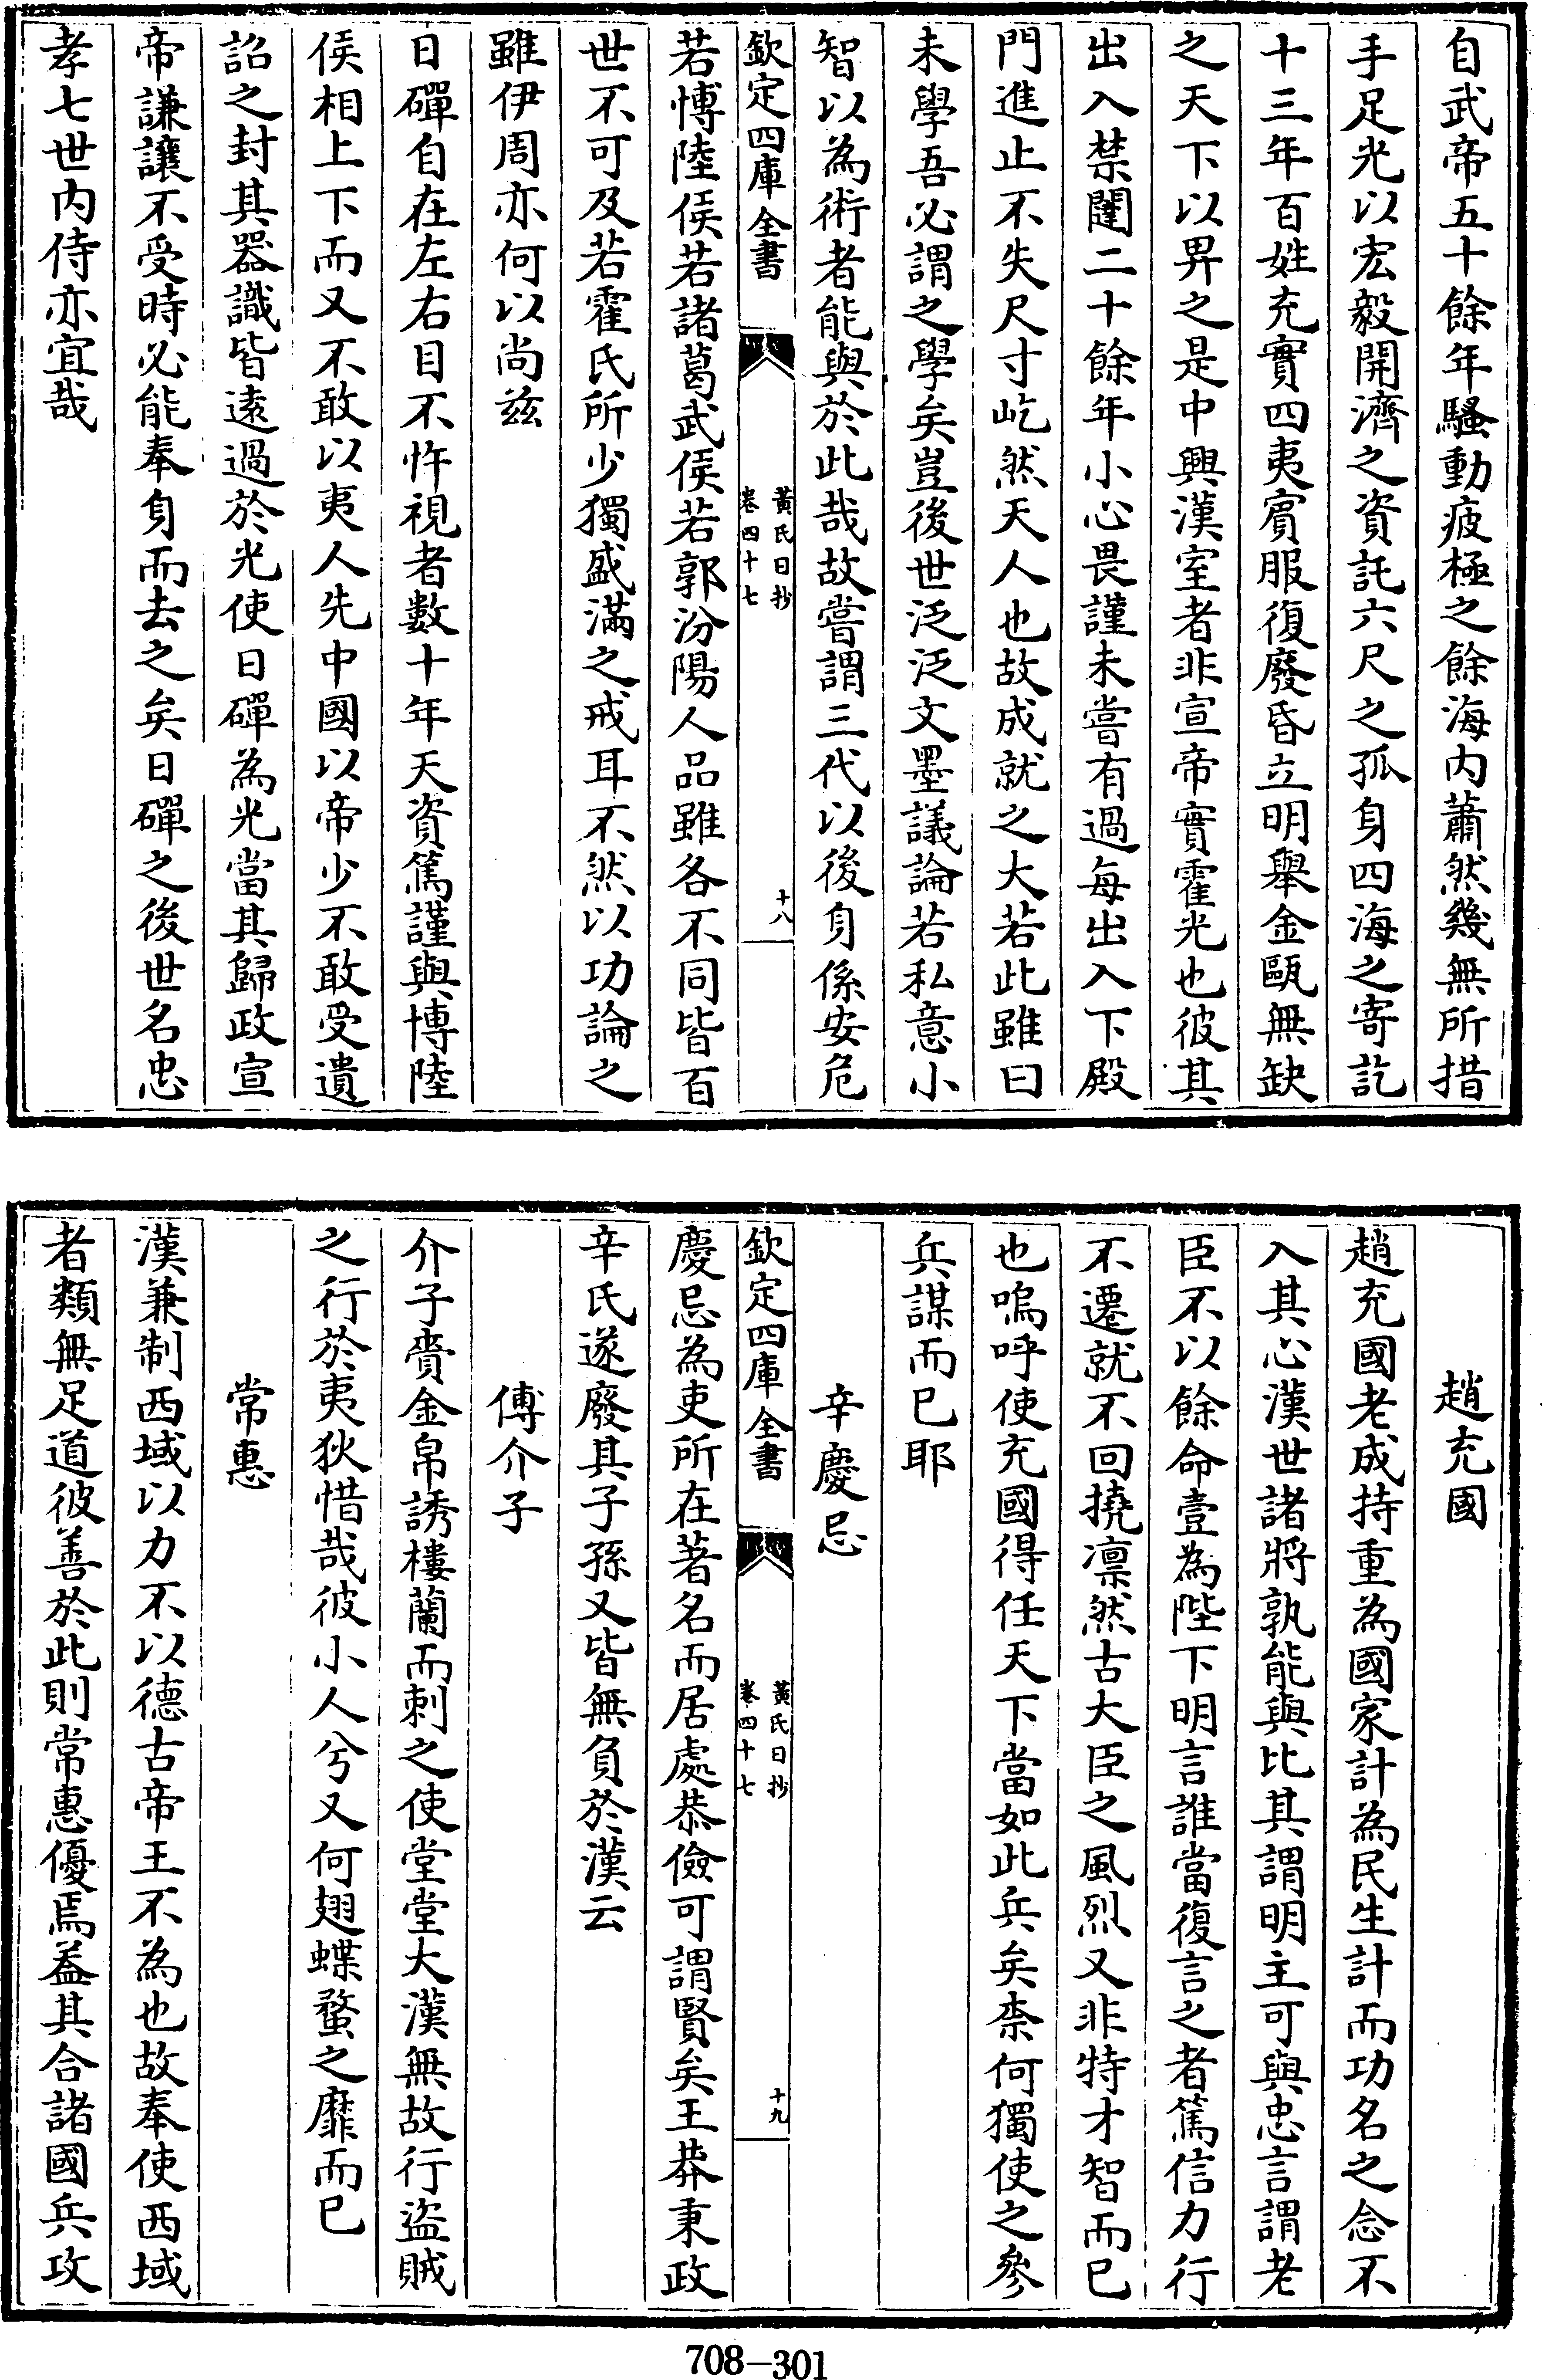 自武帝五十餘年騷動疲極之餘海内蕭然幾無所措
手足光以宏毅開濟之資託六尺之孤身四海之寄訖
十三年百姓充實四夷賓服復廢昏立明舉金甌無缺
之天下以畀之是中興漢室者非宣帝實霍光也彼其
出入禁闥二十餘年小心畏謹未嘗有過每出入下殿
門進止不失尺寸屹然天人也故成就之大若此雖曰
未學吾必謂之學矣豈後世泛泛文墨議論若私意小
智以為術者能與於此哉故嘗謂三代以後身係安危
欽定四庫全書
黃氏日抄
卷四十七
十八
若博陸侯若諸葛武侯若郭汾陽人品雖各不同皆百
世不可及若霍氏所少獨盛滿之戒耳不然以功論之
雖伊周亦何以尚兹
日磾自在左右目不忤視者數十年天資篤謹與博陸
侯相上下而又不敢以夷人先中國以帝少不敢受遺
詔之封其器識皆遠過於光使日磾為光當其歸政宣
帝謙讓不受時必能奉身而去之矣日磾之後世名忠
孝七世内侍亦宜哉
趙充國
趙充國老成持重為國家計為民生計而功名之念不
入其心漢世諸將孰能與比其謂明主可與忠言謂老
臣不以餘命壹為陛下明言誰當復言之者篤信力行
不遷就不回撓凛然古大臣之風烈又非特才智而已
也嗚呼使充國得任天下當如此兵矣柰何獨使之參
兵謀而已耶
辛慶忌
欽定四庫全書
黃氏日抄
卷四十七
十九
慶忌為吏所在著名而居處恭儉可謂賢矣王莽秉政
辛氏遂廢其子孫又皆無負於漢云
傅介子
介子賫金帛誘樓蘭而刺之使堂堂大漢無故行盜賊
之行於夷狄惜哉彼小人兮又何翅蝶蝥之靡而已
常惠
漢兼制西域以力不以德古帝王不為也故奉使西域
者類無足道彼善於此則常惠優焉葢其合諸國兵攻
708-301